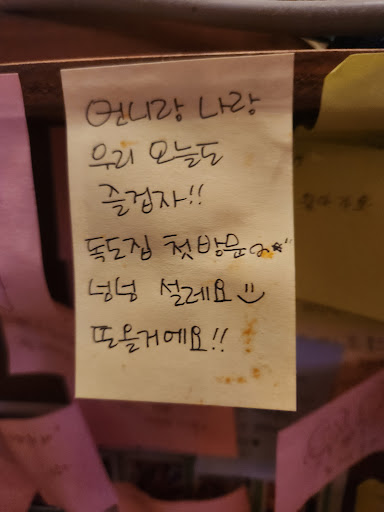 언니랑 나랑
우리 오늘도
즐겁자!!
독도집 첫방문
넝넝 설레요
또올거에요!!